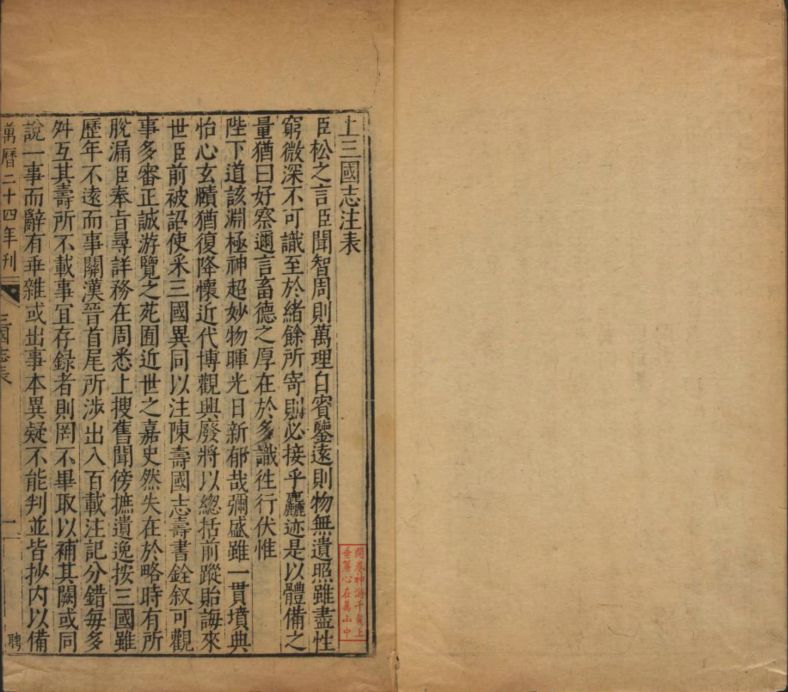 上三國志注表
臣松之言臣聞智周則萬理自賓鑒遠則物無遺照雖盡性
窮微深不可識至於緒餘所寄則必接乎麤迹是以體備之
量猶曰好察邇言畜德之厚在於多識徃行伏惟
陛下道該淵極神超妙物暉光日新郁哉彌盛雖一貫墳典
怡心玄賾猶復降懷近代博觀興廢將以緫括前蹤貽誨來
世臣前被詔使采三國異同以注陳壽國志壽書銓叙可觀
事多審正誠游覽之苑囿近世之嘉史然失在於略時有所
脫漏臣奉旨尋詳務在周悉上搜舊聞傍摭遺逸按三國雖
歷年不遠而事關漢晉首尾所涉出入百載注記分錯每多
舛互其壽所不載事宜存録者則罔不畢取以補其闕或同
說一事而辭有乖雜或出事本異疑不能判並皆抄内以備
萬曆二十四年刊
三國志表
一
聘
開卷神游千載上
垂簾心在萬山中